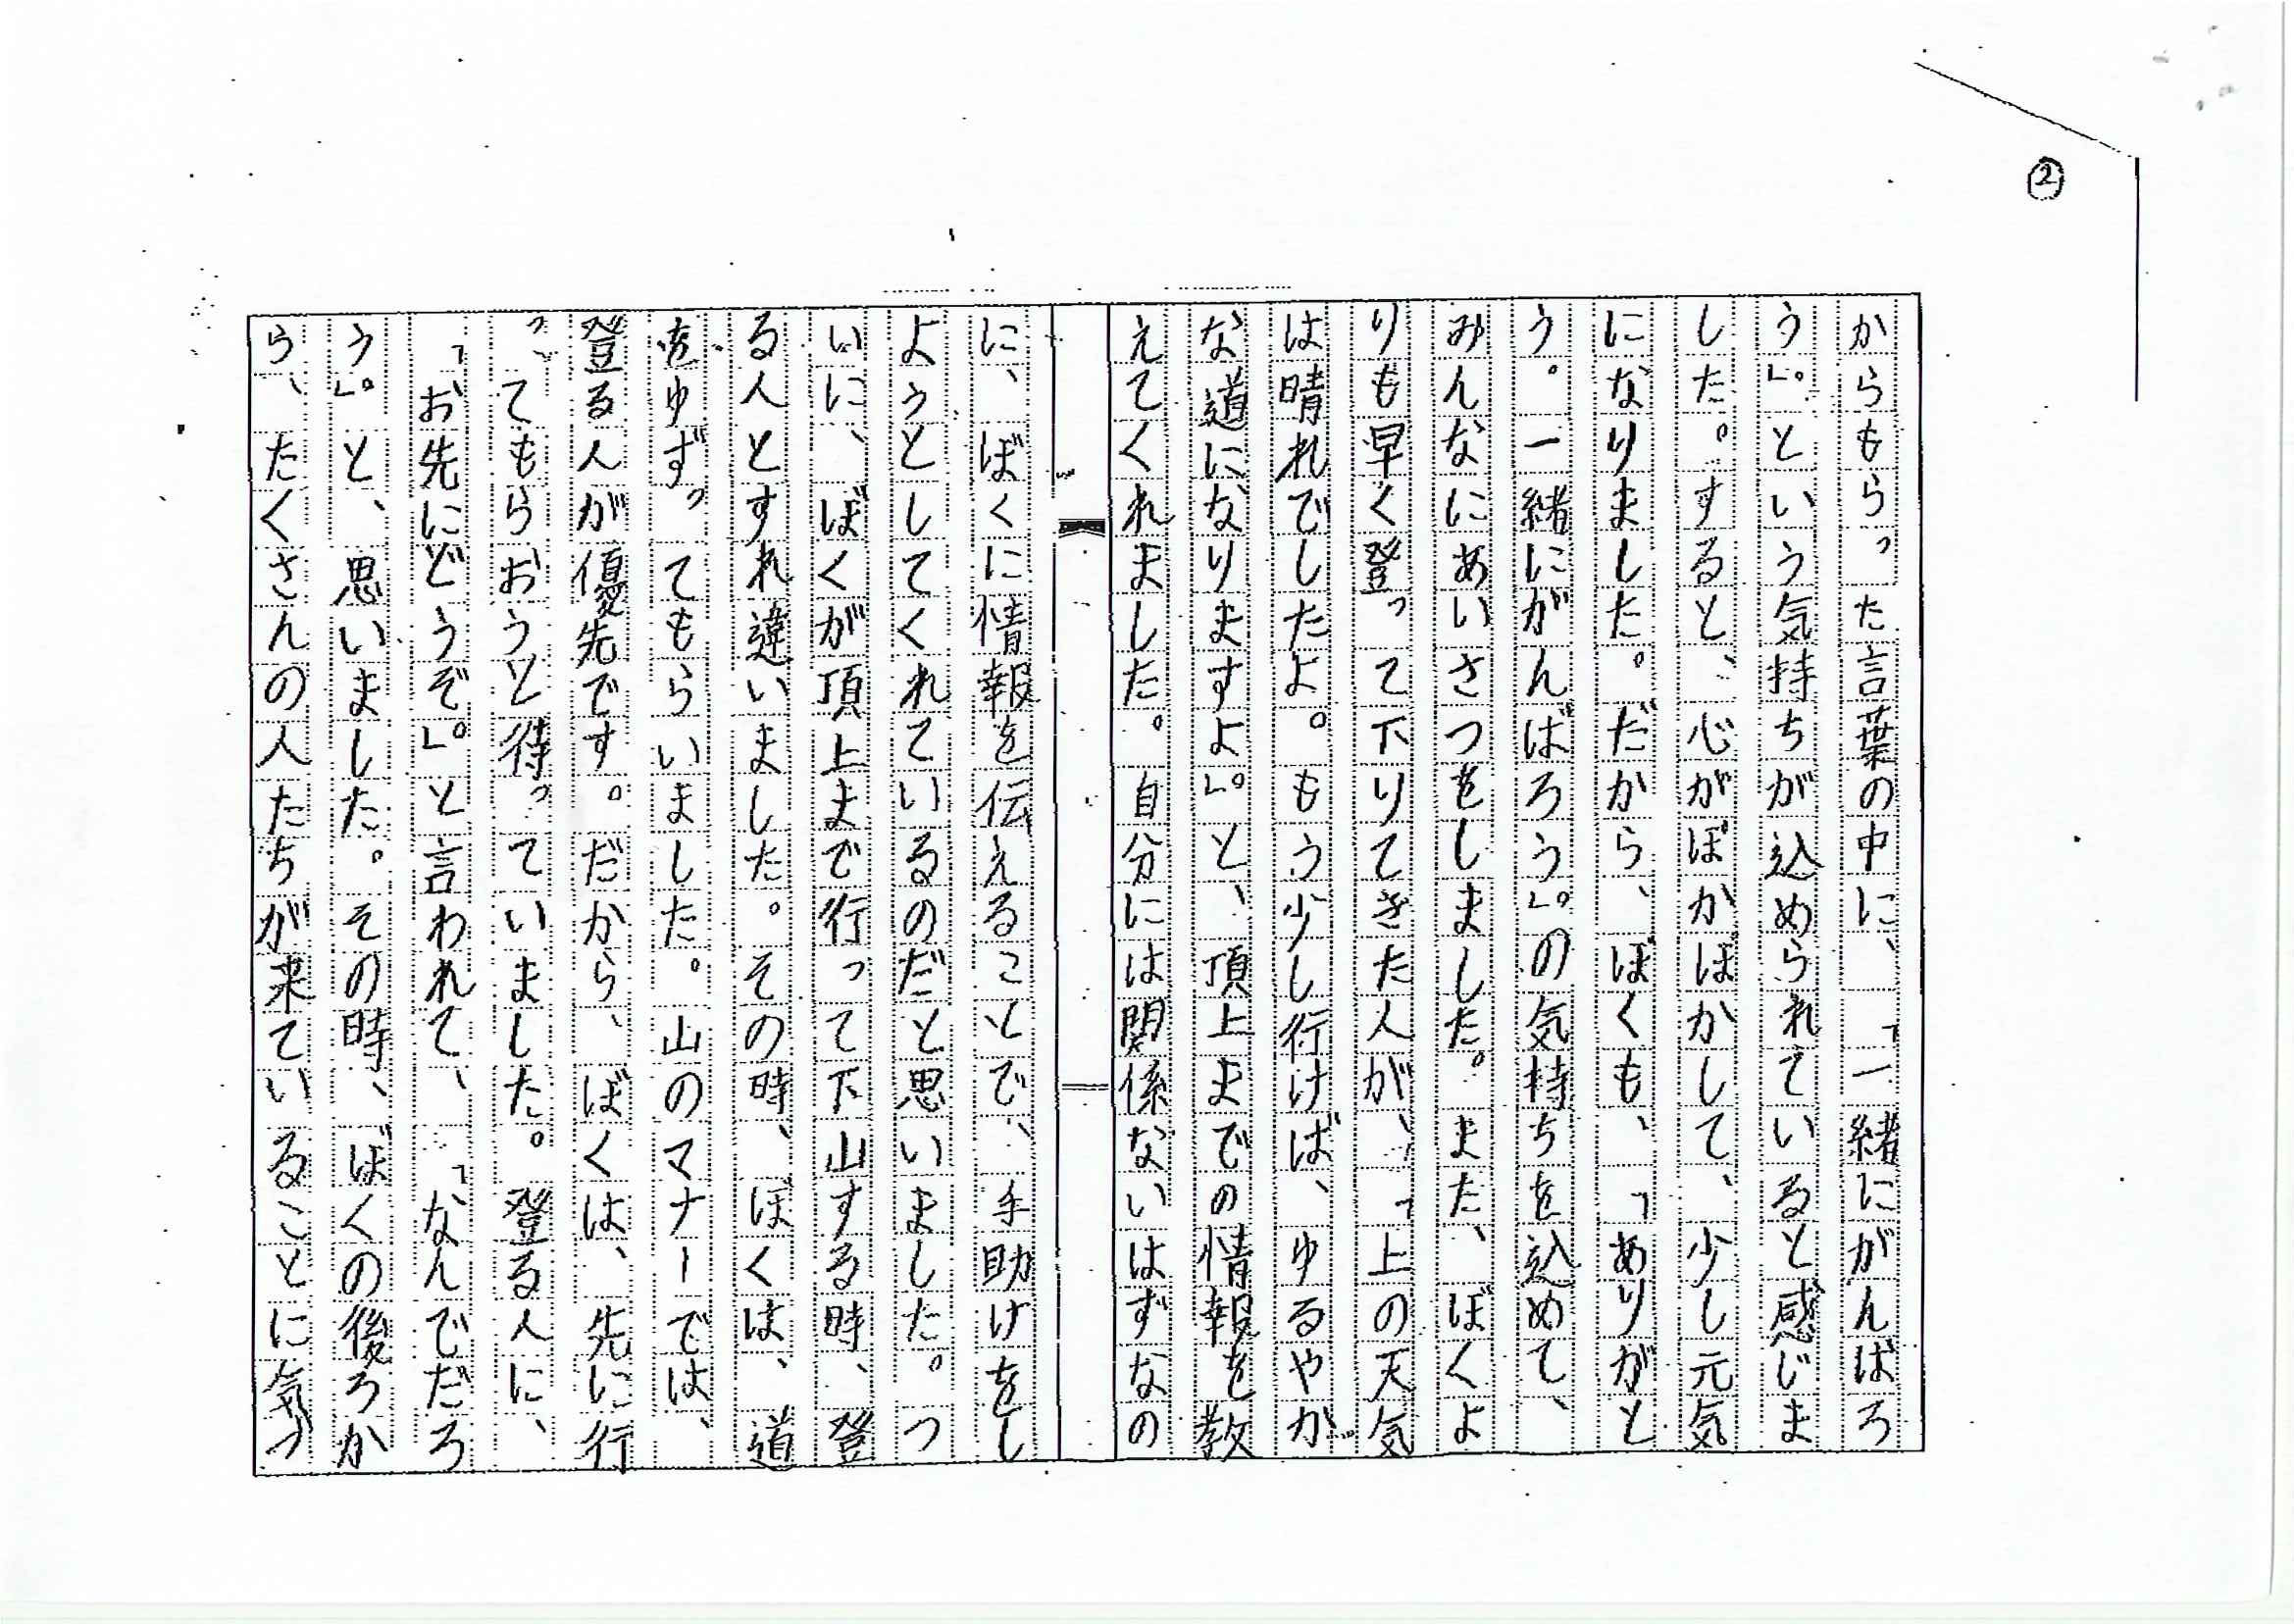 ②
からもらった言葉の中に、「一緒にがんばろ
う」。という気持ちが込められていると感じま
した。すると、心がぽかぽかして、少し元気
になりました。だから、ぼくも、「ありがと
う。一緒にがんばろう」。の気持ちを込めて、
みんなにあいさつをしました。また、ぼくよ
りも早く登って下りてきた人が、「上の天気
は晴れでしたよ。もう少し行けば、ゆるやか
な道になりますよ」。と、頂上までの情報を教
えてくれました。自分には関係ないはずなの
に、ぼくに情報を伝えることで、手助けをし
ようとしてくれているのだと思いました。つ
いに、ぼくが頂上まで行って下山する時、登
る人とすれ違いました。その時、ぼくは、道
をゆずってもらいました。山のマナーでは、
登る人が優先です。だから、ぼくは、先に行
ってもらおうと待っていました。登る人に、
「お先にどうぞ」。と言われて、「なんでだろ
う」。と、思いました。その時、ぼくの後ろか
ら、たくさんの人たちが来ていることに気づ